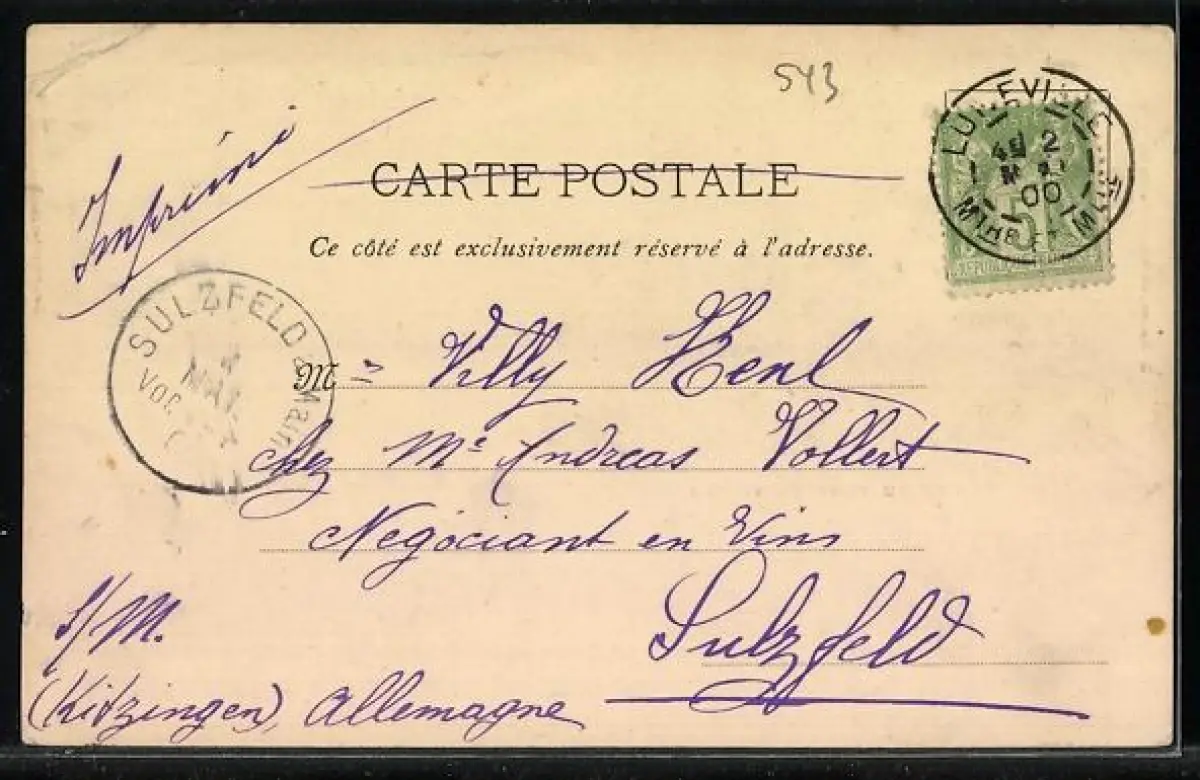 543
Imprimé
CARTE POSTALE
Ce côté est exclusivement réservé à l'adresse.
LUNEVILLE
2
00
5
SULZFELD a. Main
MAI
VOR
M r Villy Henl
chez Mr Andreas Vollert
Négociant en Vins
Sulzfeld
s/M.
(Kitzingen), Allemagne